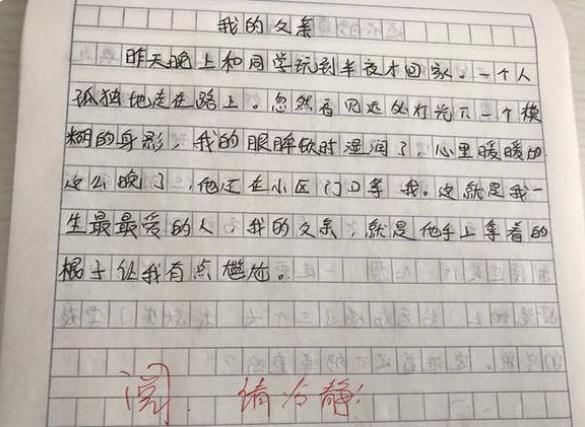 我的父亲
昨天晚上和同学玩到半夜才回家。一个人
孤独地走在路上。忽然看见远处灯光下一个模
糊的身影，我的眼眸顿时湿润了，心里暖暖的
这么晚了，他还在小区门口等我。这就是我一
生最最爱的人，我的父亲，就是他手上拿着的
棍子让我有点尴尬。
阅. 请冷静!